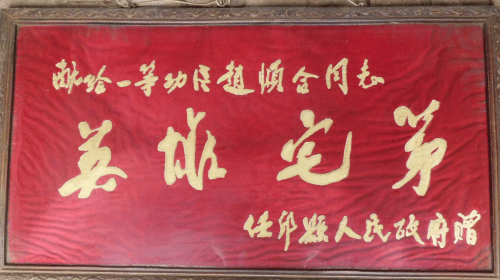 献给一等功臣趙順合同志
英雄宅第
任邱縣人民政府赠